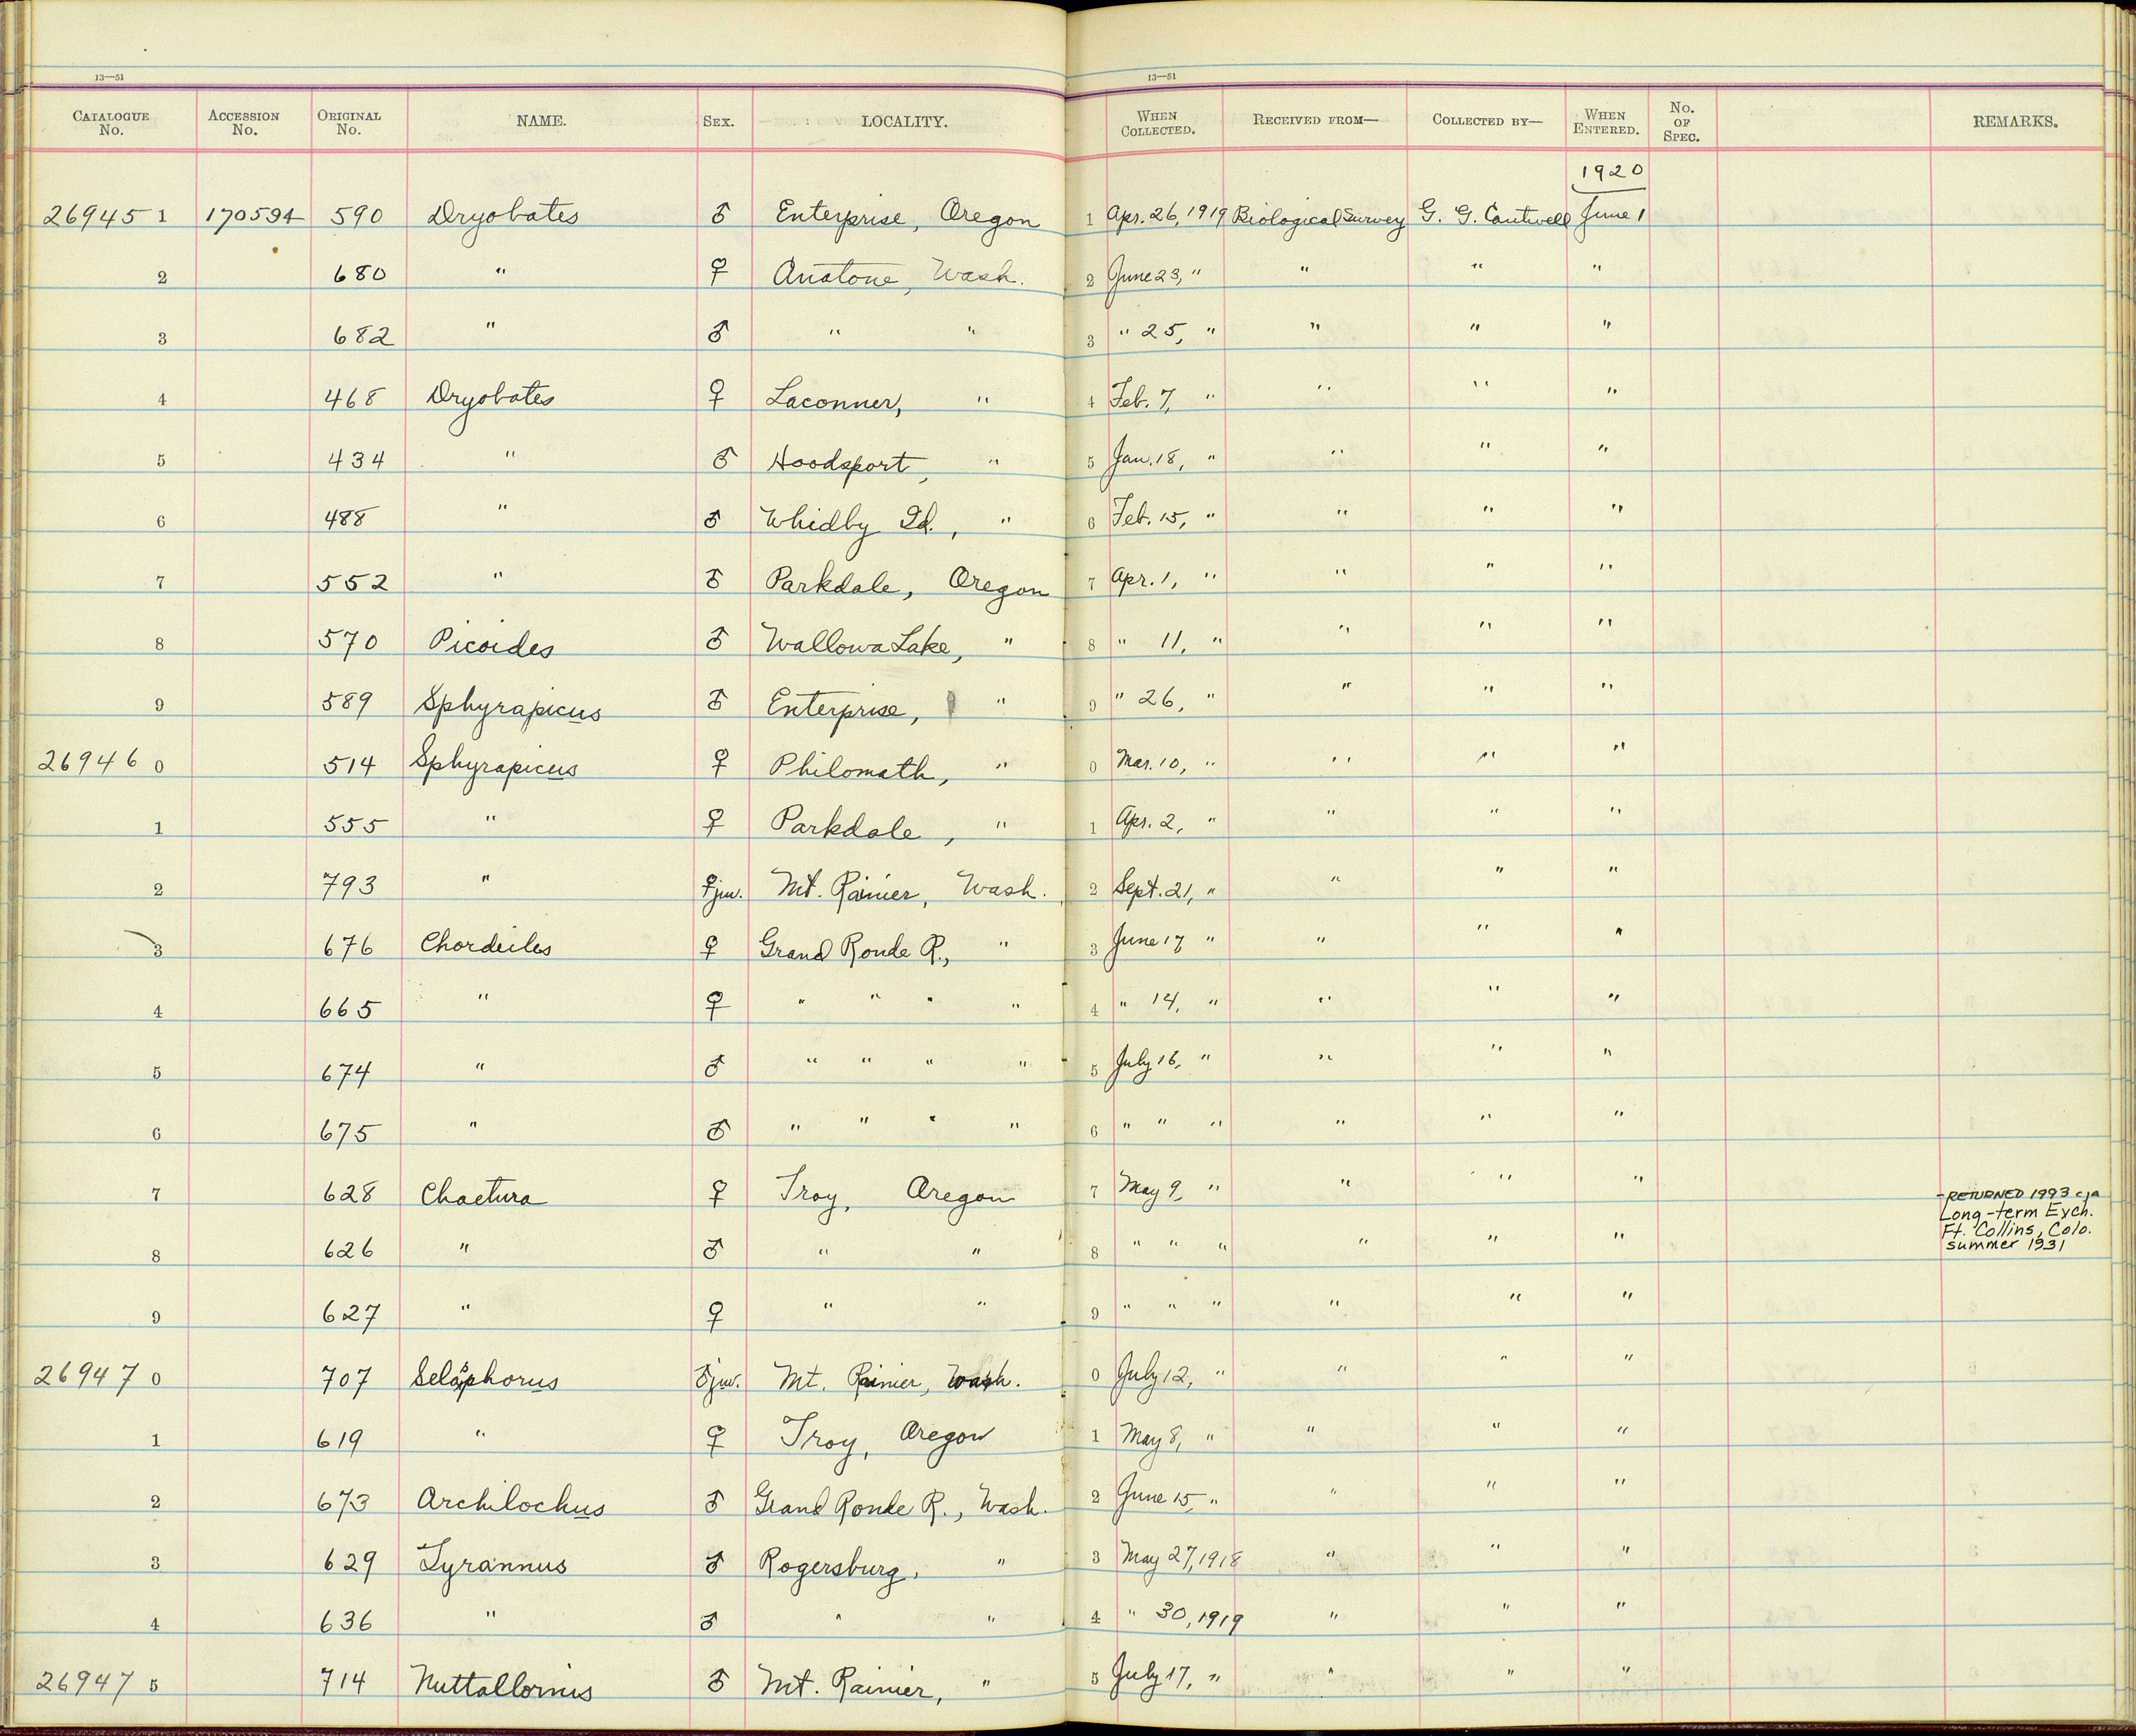 13—51 13—51
CATALOGUE No. ACCESSION No. ORIGINAL No. NAME. SEX. LOCALITY. WHEN COLLECTED. RECEIVED FROM— COLLECTED BY— WHEN ENTERED. No. OF SPEC. REMARKS.
1920
26945 1 170594 590 Dryobates ♂ Enterprise, Oregon 1 Apr. 26, 1919 Biological Survey G. G. Cantwell June 1
2 680 " ♀ Anatone, Wash. 2 June 23, " " " "
3 682 " ♂ " " 3 " 25, " " " "
4 468 Dryobates ♀ Laconner, " 4 Feb. 7, " " " "
5 434 " ♂ Hoodsport, " 5 Jan. 18, " " " "
6 488 " ♂ Whidby Id., " 6 Feb. 15, " " " "
7 552 " ♂ Parkdale, Oregon 7 Apr. 1, " " " "
8 570 Picoides ♂ Wallowa Lake, " 8 " 11, " " " "
9 589 Sphyrapicus ♂ Enterprise, " 9 " 26, " " " "
26946 0 514 Sphyrapicus ♀ Philomath, " 0 Mar. 10, " " " "
1 555 " ♀ Parkdale, " 1 Apr. 2, " " " "
2 793 " ♀ juv. Mt. Rainier, Wash. 2 Sept. 21, " " " "
3 676 Chordeiles ♀ Grand Ronde R., " 3 June 17 " " " "
4 665 " ♀ " " " " 4 " 14, " " " "
5 674 " ♂ " " " " 5 July 16, " " " "
6 675 " ♂ " " " " 6 " " " " " "
7 628 Chaetura ♀ Troy, Oregon 7 May 9, " " " " – RETURNED 1993 c/a
Long-term Exch.
Ft. Collins, Colo.
summer 1931
8 626 " ♂ " " 8 " " " " " "
9 627 " ♀ " " 9 " " " " " "
26947 0 707 Selasphorus ♂ juv. Mt. Rainier, Wash. 0 July 12, " " " "
1 619 " ♀ Troy, Oregon 1 May 8, " " " "
2 673 Archilochus ♂ Grand Ronde R., Wash. 2 June 15, " " " "
3 629 Tyrannus ♂ Rogersburg, " 3 May 27, 1918 " " "
4 636 " ♂ " " 4 " 30, 1919 " " "
26947 5 714 Nuttallornis ♂ Mt. Rainier, " 5 July 17, " " " "